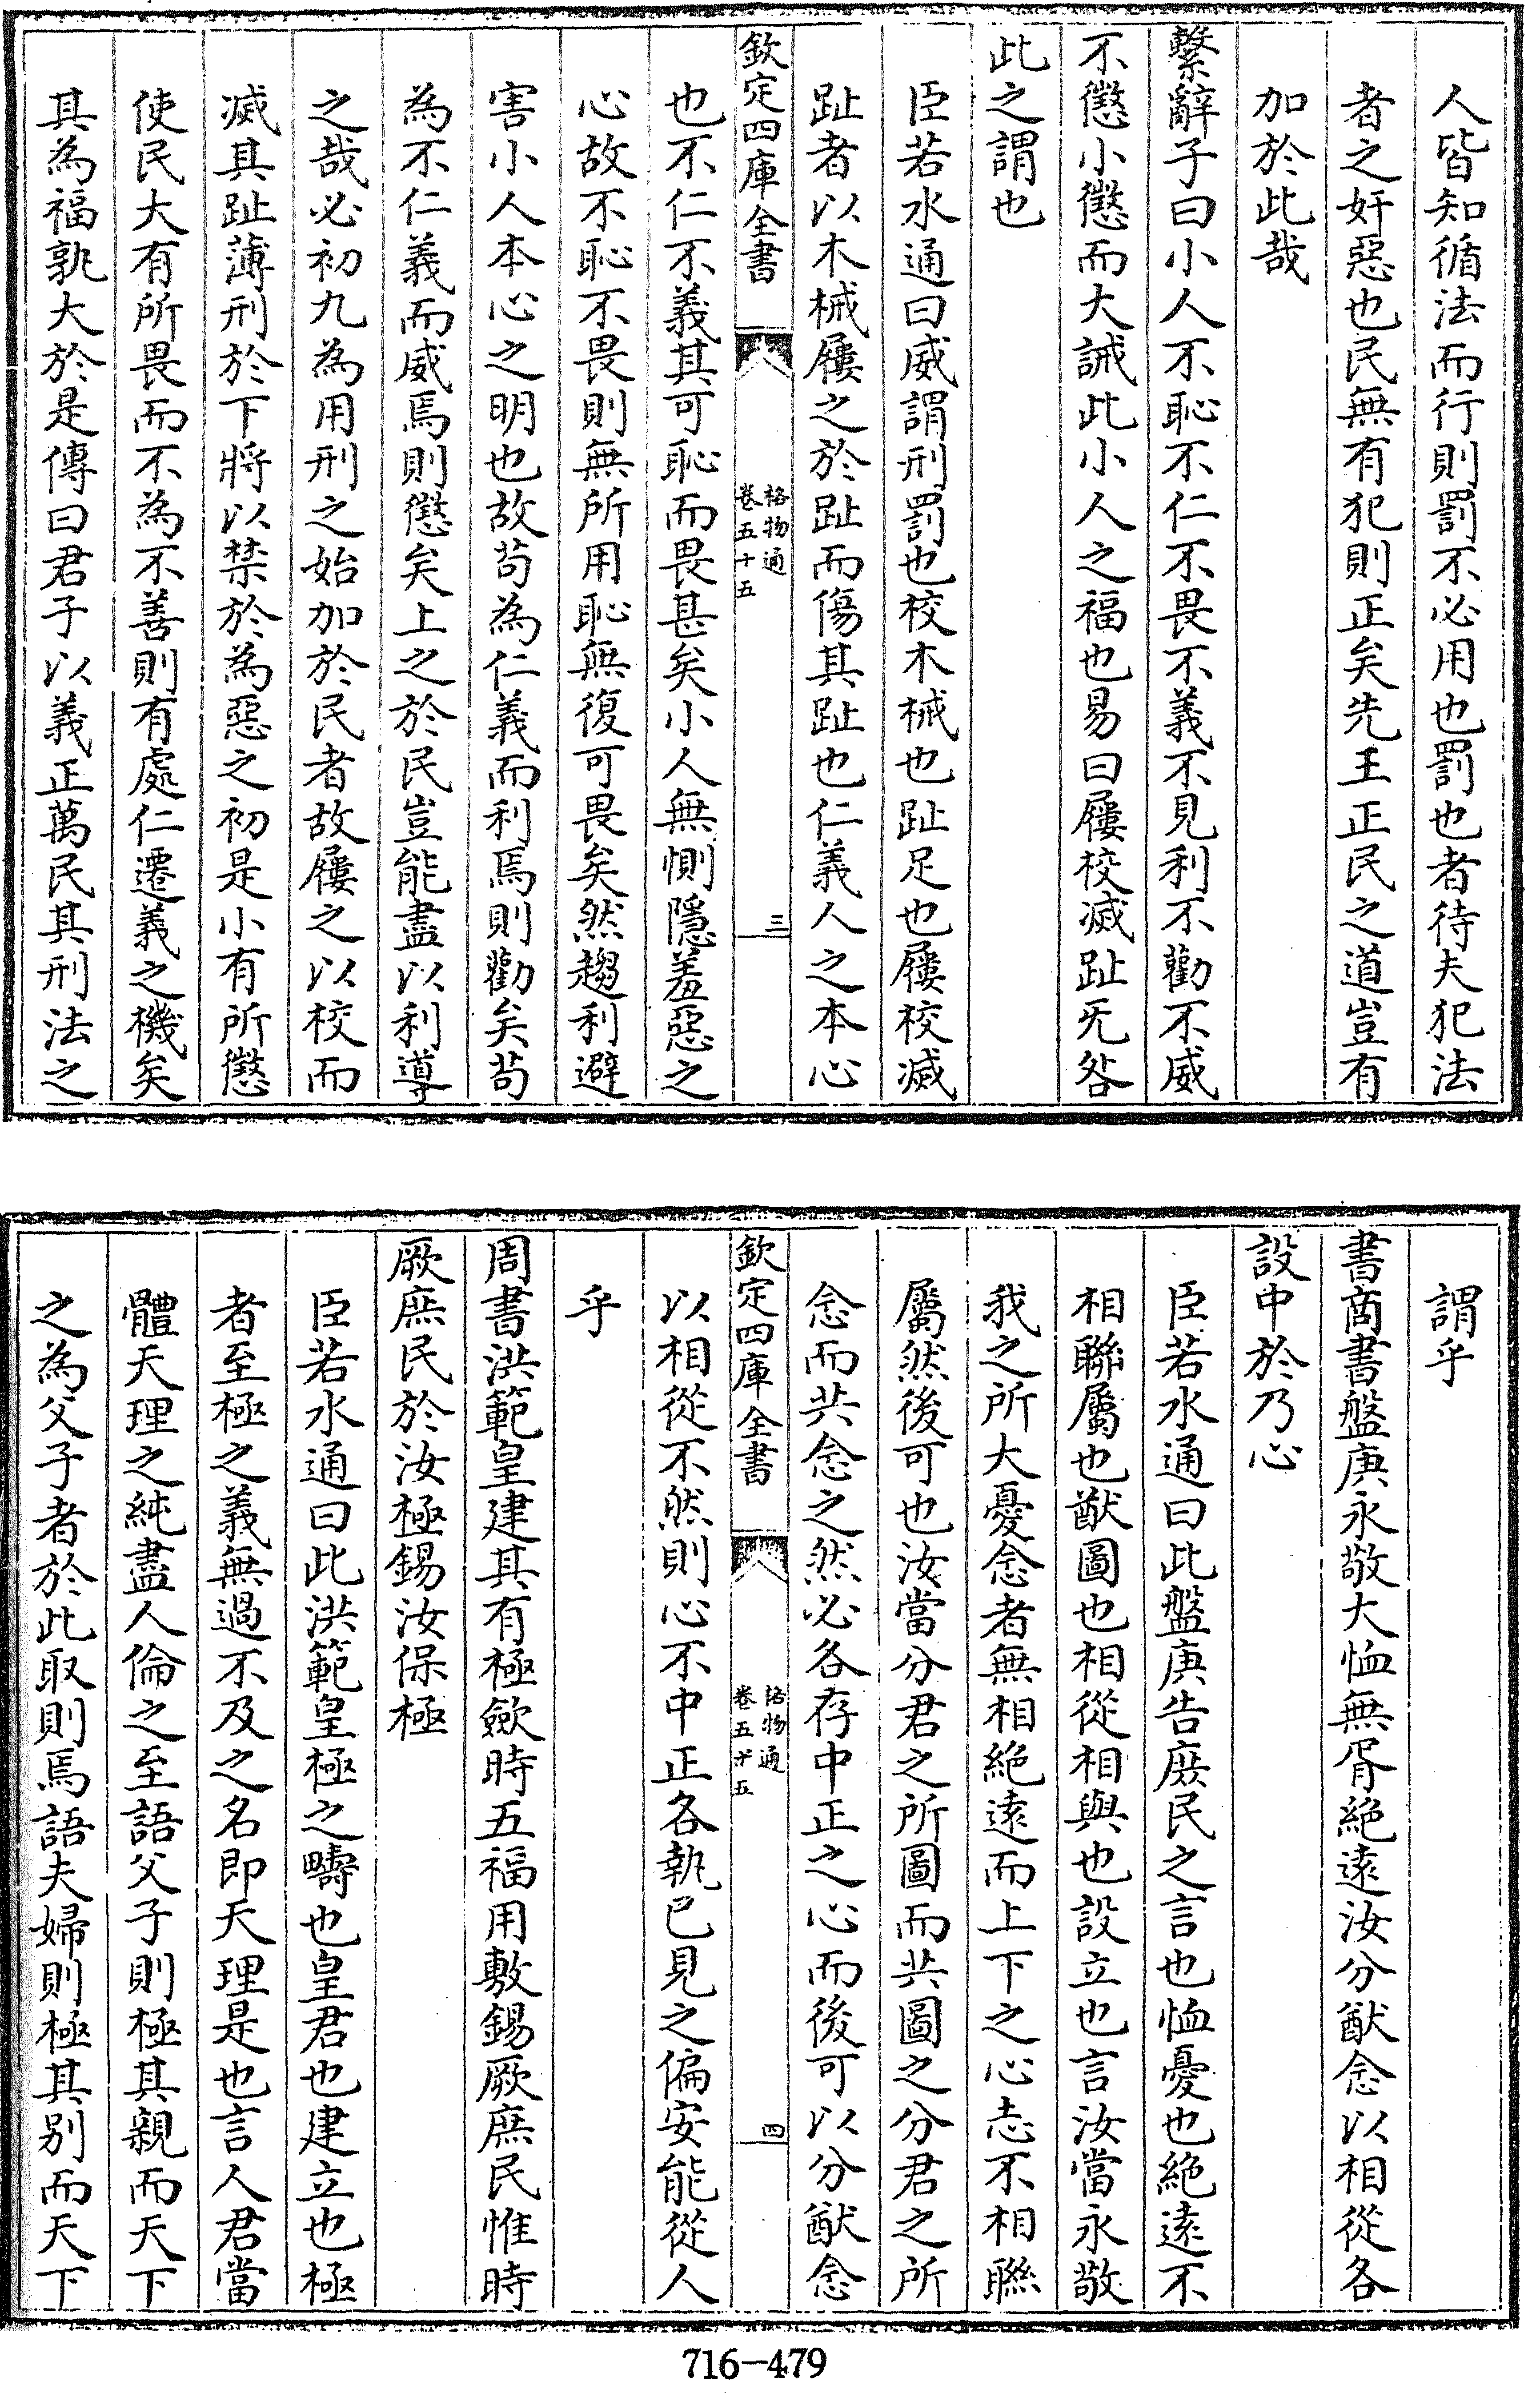 人皆知循法而行則罰不必用也罰也者待夫犯法
者之奸惡也民無有犯則正矣先王正民之道豈有
加於此哉
繫辭子曰小人不恥不仁不畏不義不見利不勸不威
不懲小懲而大誡此小人之福也易曰屨校滅趾无咎
此之謂也
臣若水通曰威謂刑罰也校木械也趾足也屨校滅
趾者以木械屨之於趾而傷其趾也仁義人之本心
欽定四庫全書
格物通
卷五十五
三
也不仁不義其可恥而畏甚矣小人無惻隱羞惡之
心故不恥不畏則無所用恥無復可畏矣然趨利避
害小人本心之明也故苟為仁義而利焉則勸矣苟
為不仁義而威焉則懲矣上之於民豈能盡以利導
之哉必初九為用刑之始加於民者故屨之以校而
滅其趾薄刑於下將以禁於為惡之初是小有所懲
使民大有所畏而不為不善則有處仁遷義之機矣
其為福孰大於是傳曰君子以義正萬民其刑法之
謂乎
書商書盤庚永敬大恤無胥絕遠汝分猷念以相從各
設中於乃心
臣若水通曰此盤庚告庶民之言也恤憂也絕遠不
相聯屬也猷圖也相從相與也設立也言汝當永敬
我之所大憂念者無相絕遠而上下之心志不相聯
屬然後可也汝當分君之所圖而共圖之分君之所
念而共念之然必各存中正之心而後可以分猷念
欽定四庫全書
格物通
卷五十五
四
以相從不然則心不中正各執已見之偏安能從人
乎
周書洪範皇建其有極斂時五福用敷錫厥庶民惟時
厥庶民於汝極錫汝保極
臣若水通曰此洪範皇極之疇也皇君也建立也極
者至極之義無過不及之名即天理是也言人君當
體天理之純盡人倫之至語父子則極其親而天下
之為父子者於此取則焉語夫婦則極其別而天下
716-479